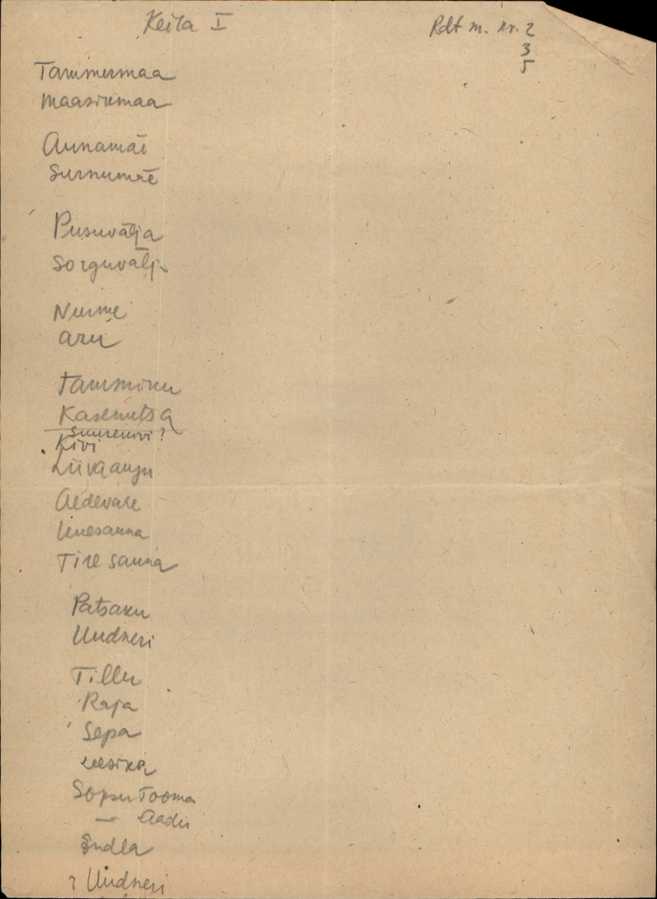 Keila I
Rdt m. nr. 2
3
5
Tammermaa
Maasikmaa
Annamäe
Surnumäe
Pusuvälja
Sorguvälja
Nurme
Aru
Tammiku
Kasemetsa
Suurekivi?
Kivi
Liivaaugu
Aedevahe
Uuesauna
Tiresauna
Patsaku
Uudneri
Tillu
Raja
Sepa
Sopsu Tooma
— Aadu
Endla
? Uudneri